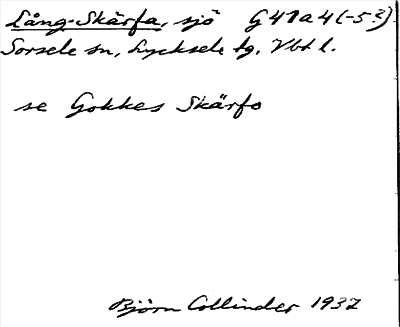 Lång-Skärfa, sjö G41a4(-5?)
Sorsele sn, Lycksele tg. Vbt l.
se Gokkes Skärfo
Björn Collinder 1937